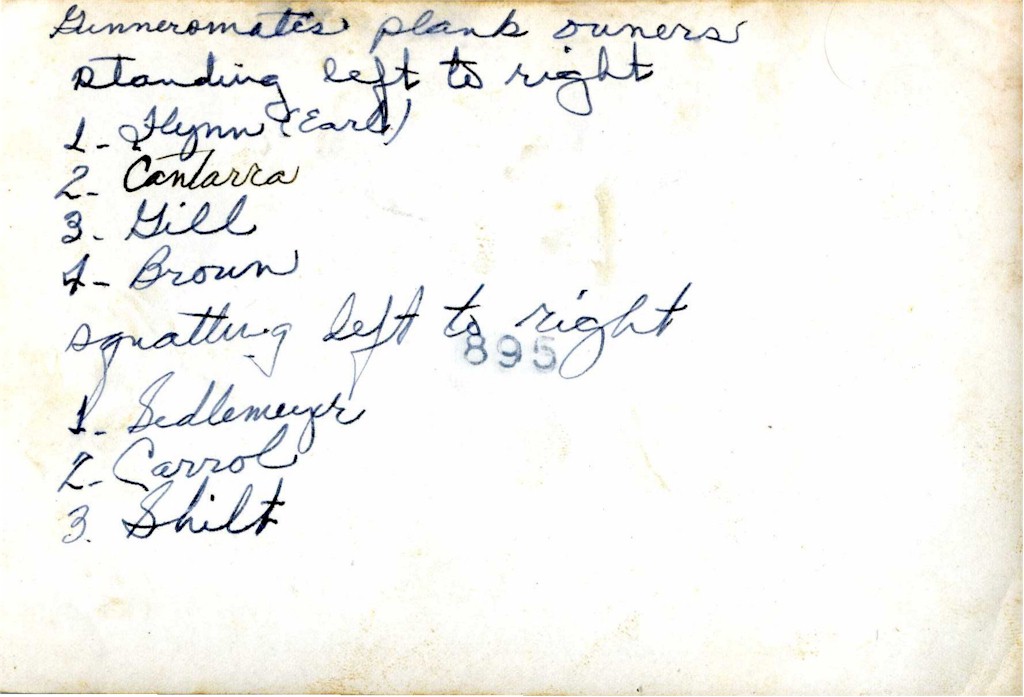 Gunnersmates plank owners
standing left to right
1- Flynn (Earl)
2- Cantarra
3- Gill
4- Brown
squatting left to right
895
1- Sedlemeyer
2- Carrol
3. Shilt